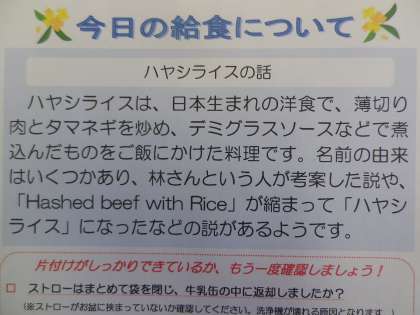 今日の給食について
ハヤシライスの話
ハヤシライスは、日本生まれの洋食で、薄切り
肉とタマネギを炒め、デミグラスソースなどで煮
込んだものをご飯にかけた料理です。名前の由来
はいくつかあり、林さんという人が考案した説や、
「Hashed beef with Rice」が縮まって「ハヤシ
ライス」になったなどの説があるようです。
片付けがしっかりできているか、もう一度確認しましょう！
□ ストローはまとめて袋を閉じ、牛乳缶の中に返却しましたか？
(※ストローがお盆に挟まっていないか確認してください。洗浄機が壊れる原因となります